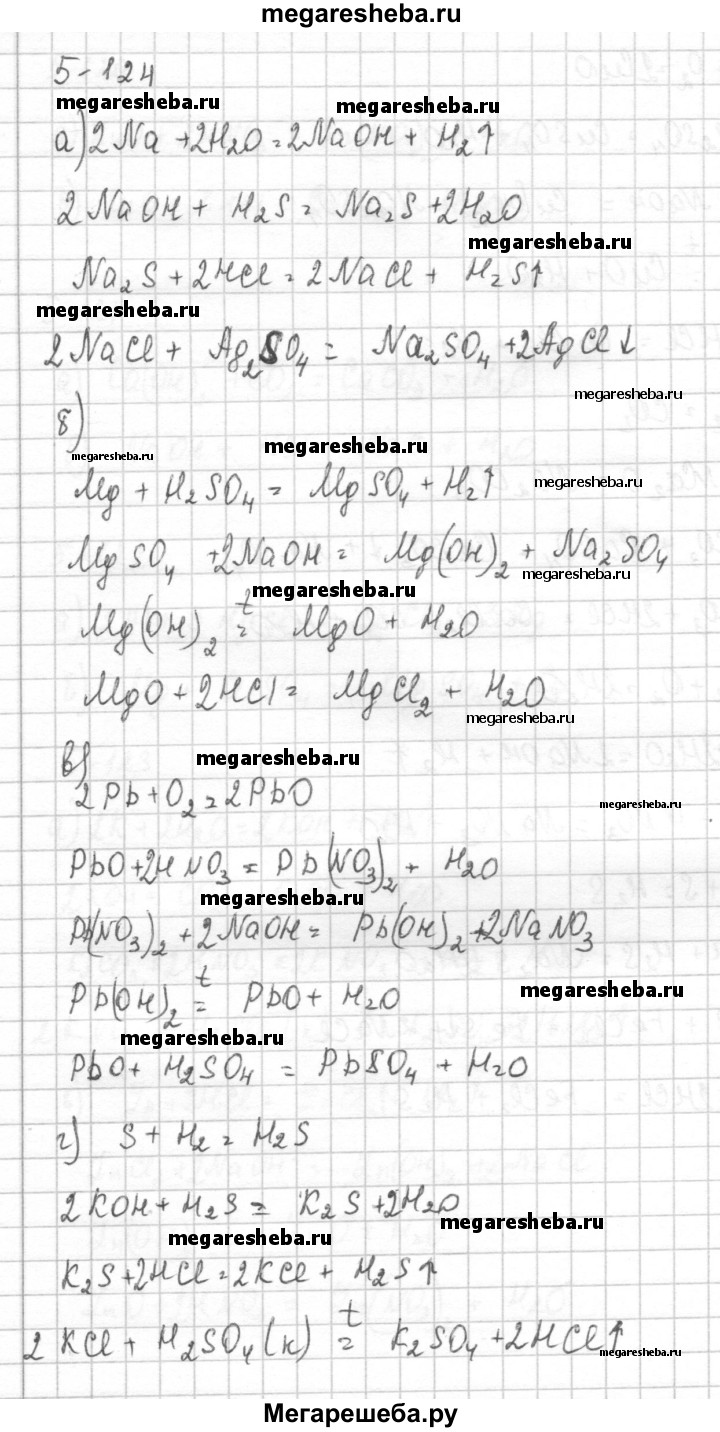 megaresheba.ru
5-124
megaresheba.ru megaresheba.ru
а) 2Na + 2H₂O = 2NaOH + H₂↑
2NaOH + H₂S = Na₂S + 2H₂O
megaresheba.ru
Na₂S + 2HCl = 2NaCl + H₂S↑
megaresheba.ru
2NaCl + Ag₂SO₄ = Na₂SO₄ + 2AgCl↓
megaresheba.ru
б)
megaresheba.ru megaresheba.ru
Mg + H₂SO₄ = MgSO₄ + H₂↑ megaresheba.ru
MgSO₄ + 2NaOH = Mg(OH)₂ + Na₂SO₄
megaresheba.ru megaresheba.ru
Mg(OH)₂ =ᵗ MgO + H₂O
MgO + 2HCl = MgCl₂ + H₂O
megaresheba.ru
в) megaresheba.ru
2Pb + O₂ = 2PbO megaresheba.ru
PbO + 2HNO₃ = Pb(NO₃)₂ + H₂O
megaresheba.ru
Pb(NO₃)₂ + 2NaOH = Pb(OH)₂ + 2NaNO₃
Pb(OH)₂ =ᵗ PbO + H₂O megaresheba.ru
megaresheba.ru
PbO + H₂SO₄ = PbSO₄ + H₂O
г) S + H₂ = H₂S
2KOH + H₂S = K₂S + 2H₂O
megaresheba.ru megaresheba.ru
K₂S + 2HCl = 2KCl + H₂S↑
2KCl + H₂SO₄(к) =ᵗ K₂SO₄ + 2HCl↑
megaresheba.ru
Мегарешеба.ру